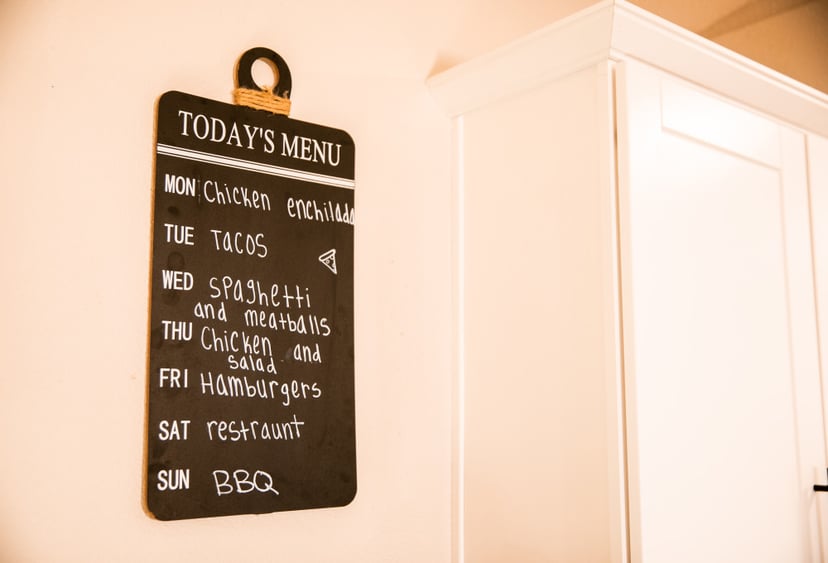 TODAY'S MENU
MON Chicken enchilada
TUE TACOS
WED spaghetti
and meatballs
THU Chicken and
salad
FRI Hamburgers
SAT restraunt
SUN BBQ